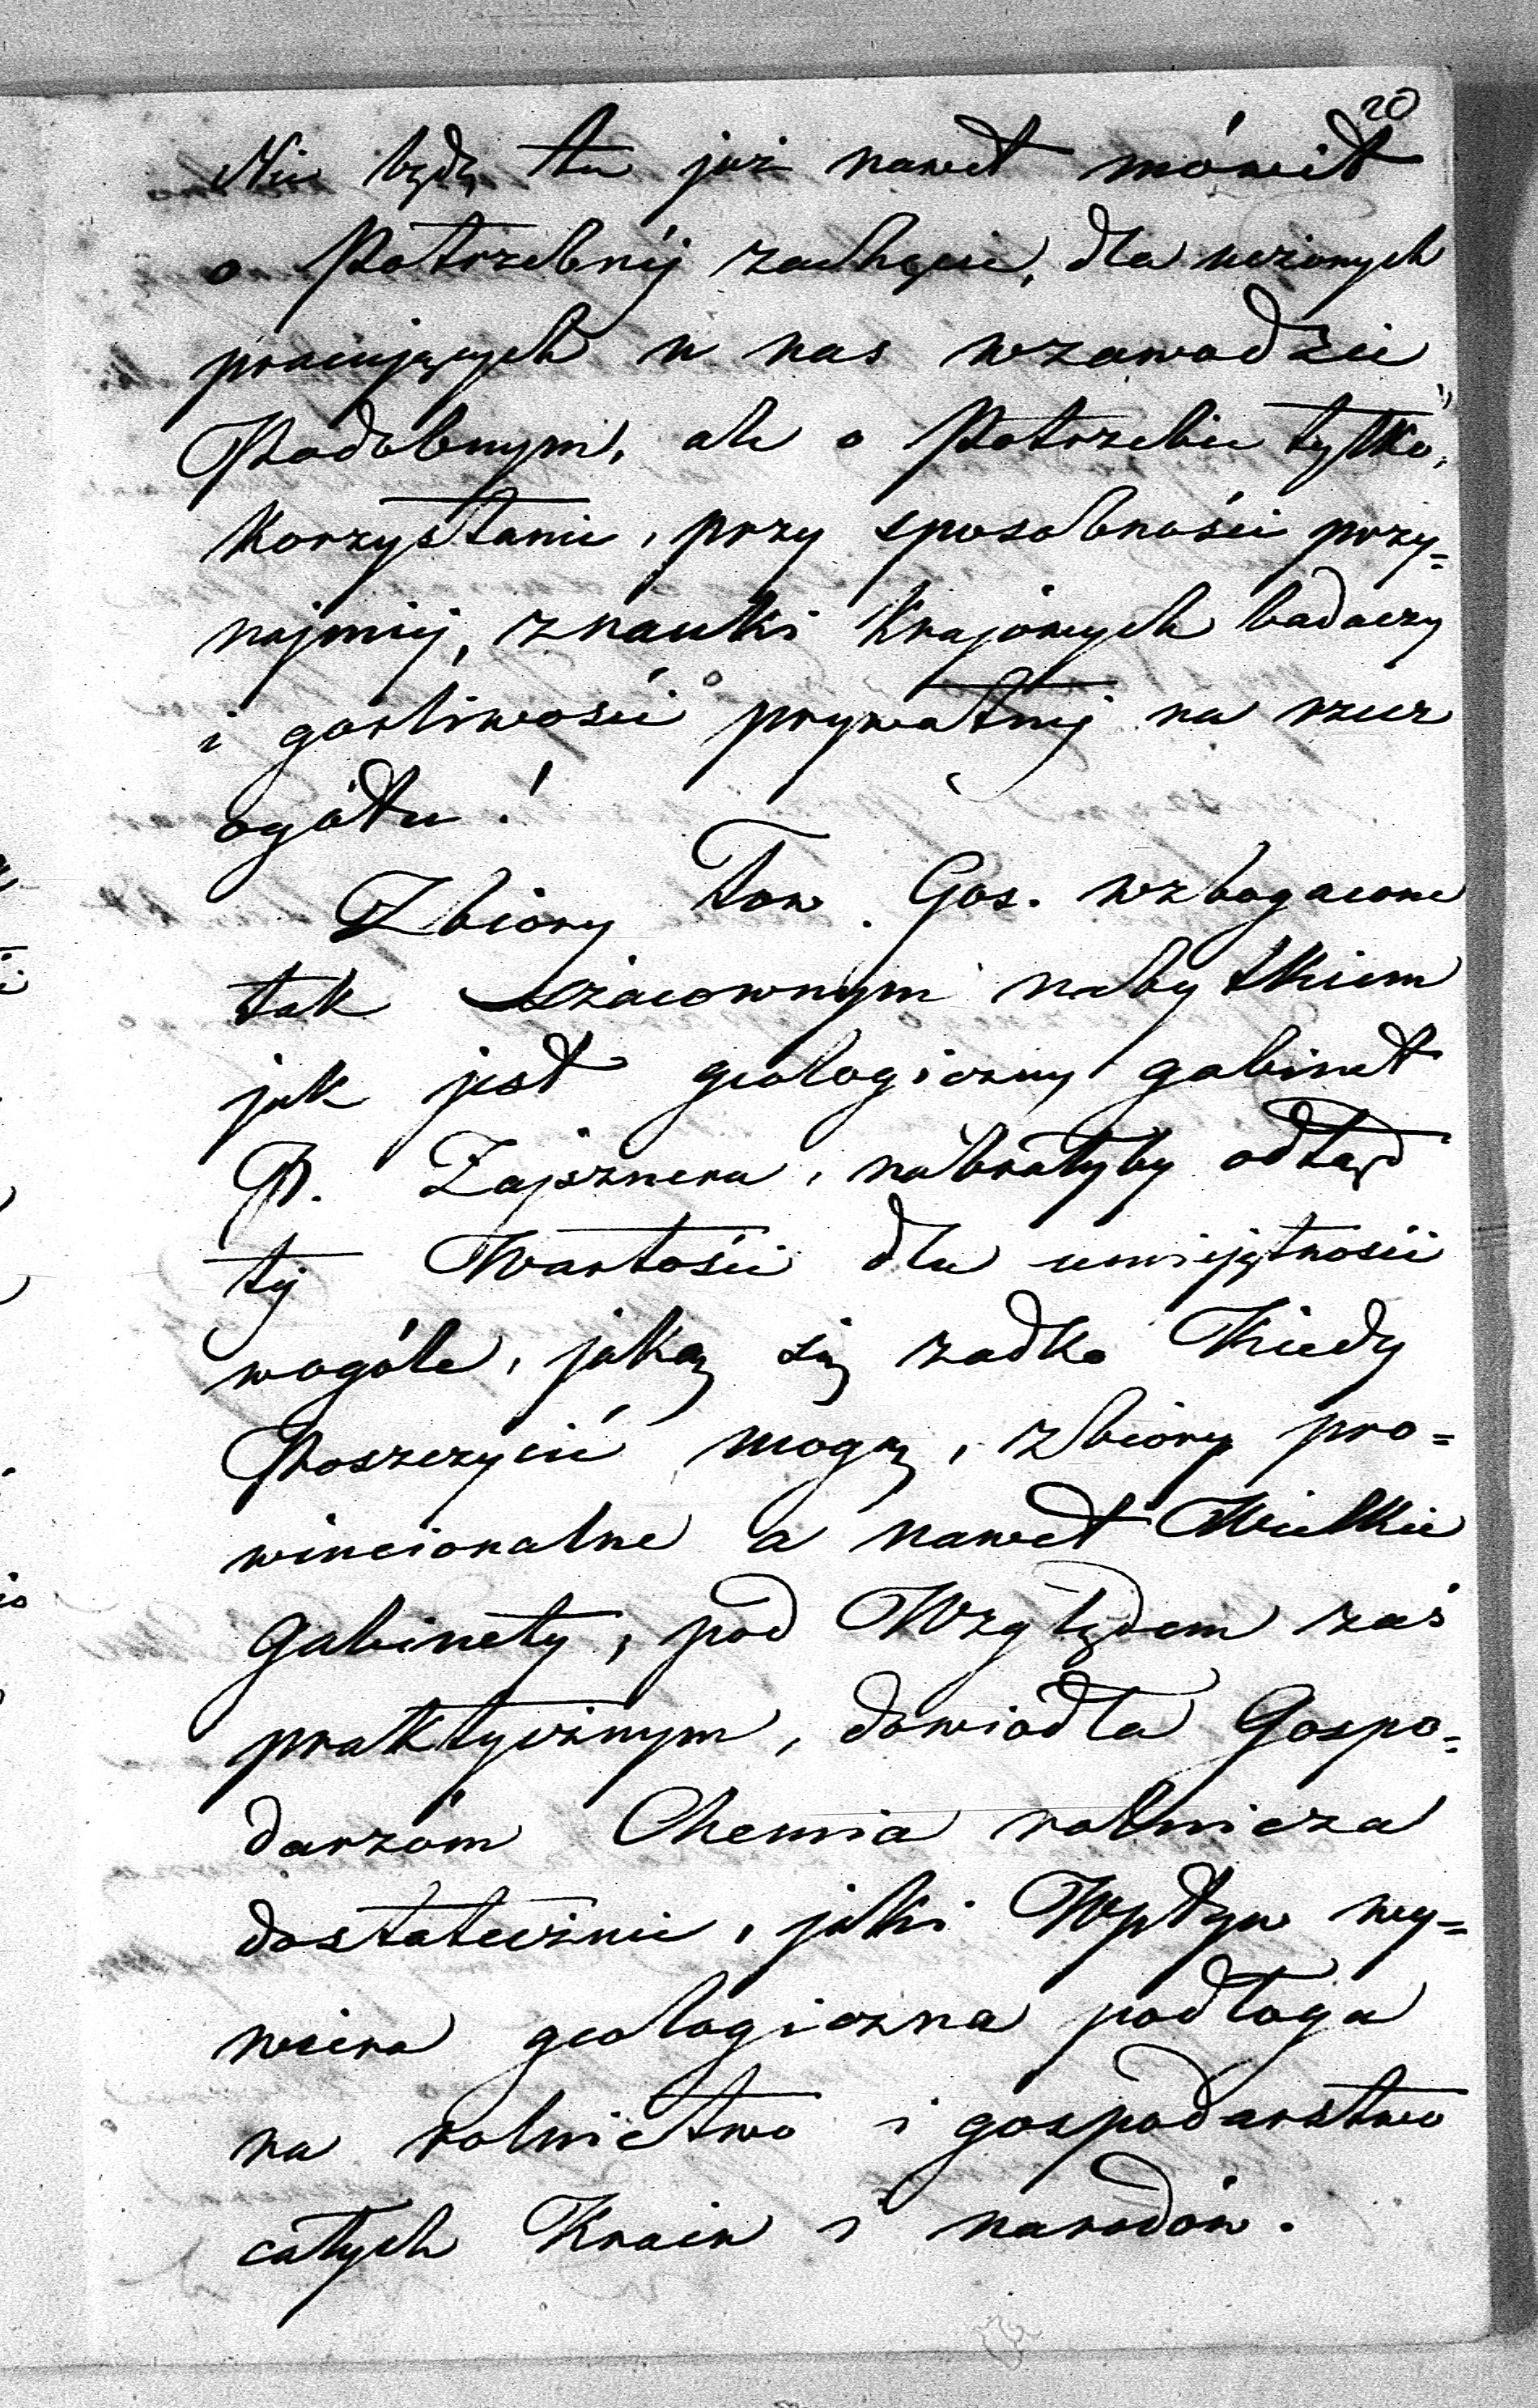 20
Nie będę tu już nawet mówił
o Potrzebnéj zachęcie, dla uczonych
pracujących u nas wzawodzie
Podobnym, ale o Potrzebie tylko,
Korzystania, przy sposobności przy=
najmiéj, znauki Krajowych badaczy
i gorliwości prywatnéj na rzecz
ogółu!
Zbiory Tow. Gos. wzbogacone
tak szacownym nabytkiem
jak jest geologiczny gabinet
P. Zajsznera, nabrałyby odtąd
téj Wartości dla umiejętności
wogóle, jaką się rzadko Kiedy
Poszczycić mogą, zbiory pro=
wincionalne a nawet Wielkie
gabinety, pod Względem zaś
praktycznym, dowiodła Gospo=
darzóm Chemia rolnicza
dostatecznie, jaki Wpływ wy=
wiera geologiczna podłoga
na rolnictwo i gospodarstwo
całych Krain i narodów.